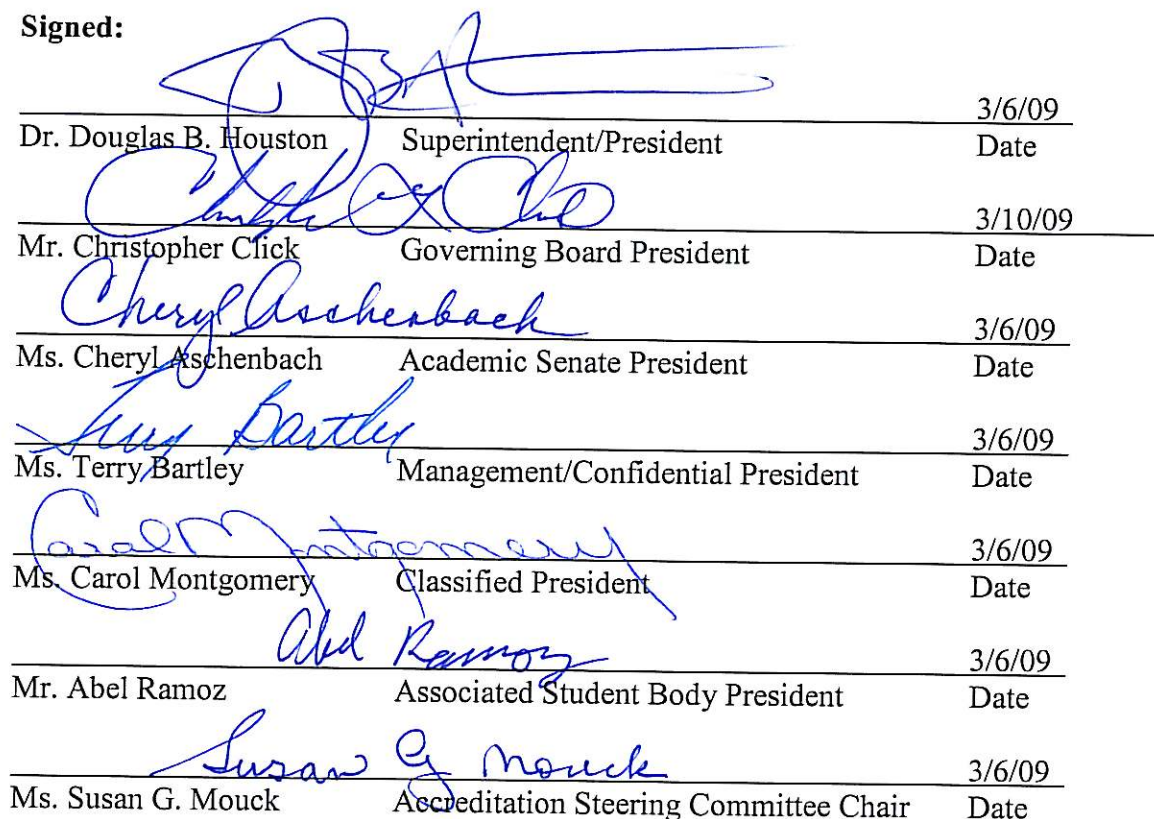 Signed:
3/6/09
Dr. Douglas B. Houston Superintendent/President Date
Christopher L Click 3/10/09
Mr. Christopher Click Governing Board President Date
Cheryl Aschenbach 3/6/09
Ms. Cheryl Aschenbach Academic Senate President Date
Terry Bartley 3/6/09
Ms. Terry Bartley Management/Confidential President Date
Carol Montgomery 3/6/09
Ms. Carol Montgomery Classified President Date
Abel Ramoz 3/6/09
Mr. Abel Ramoz Associated Student Body President Date
Susan G Mouck 3/6/09
Ms. Susan G. Mouck Accreditation Steering Committee Chair Date